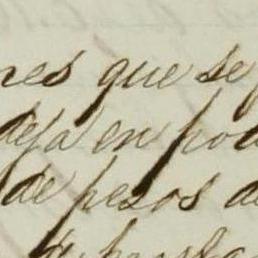 nes que se
deja en pod
de pesos de